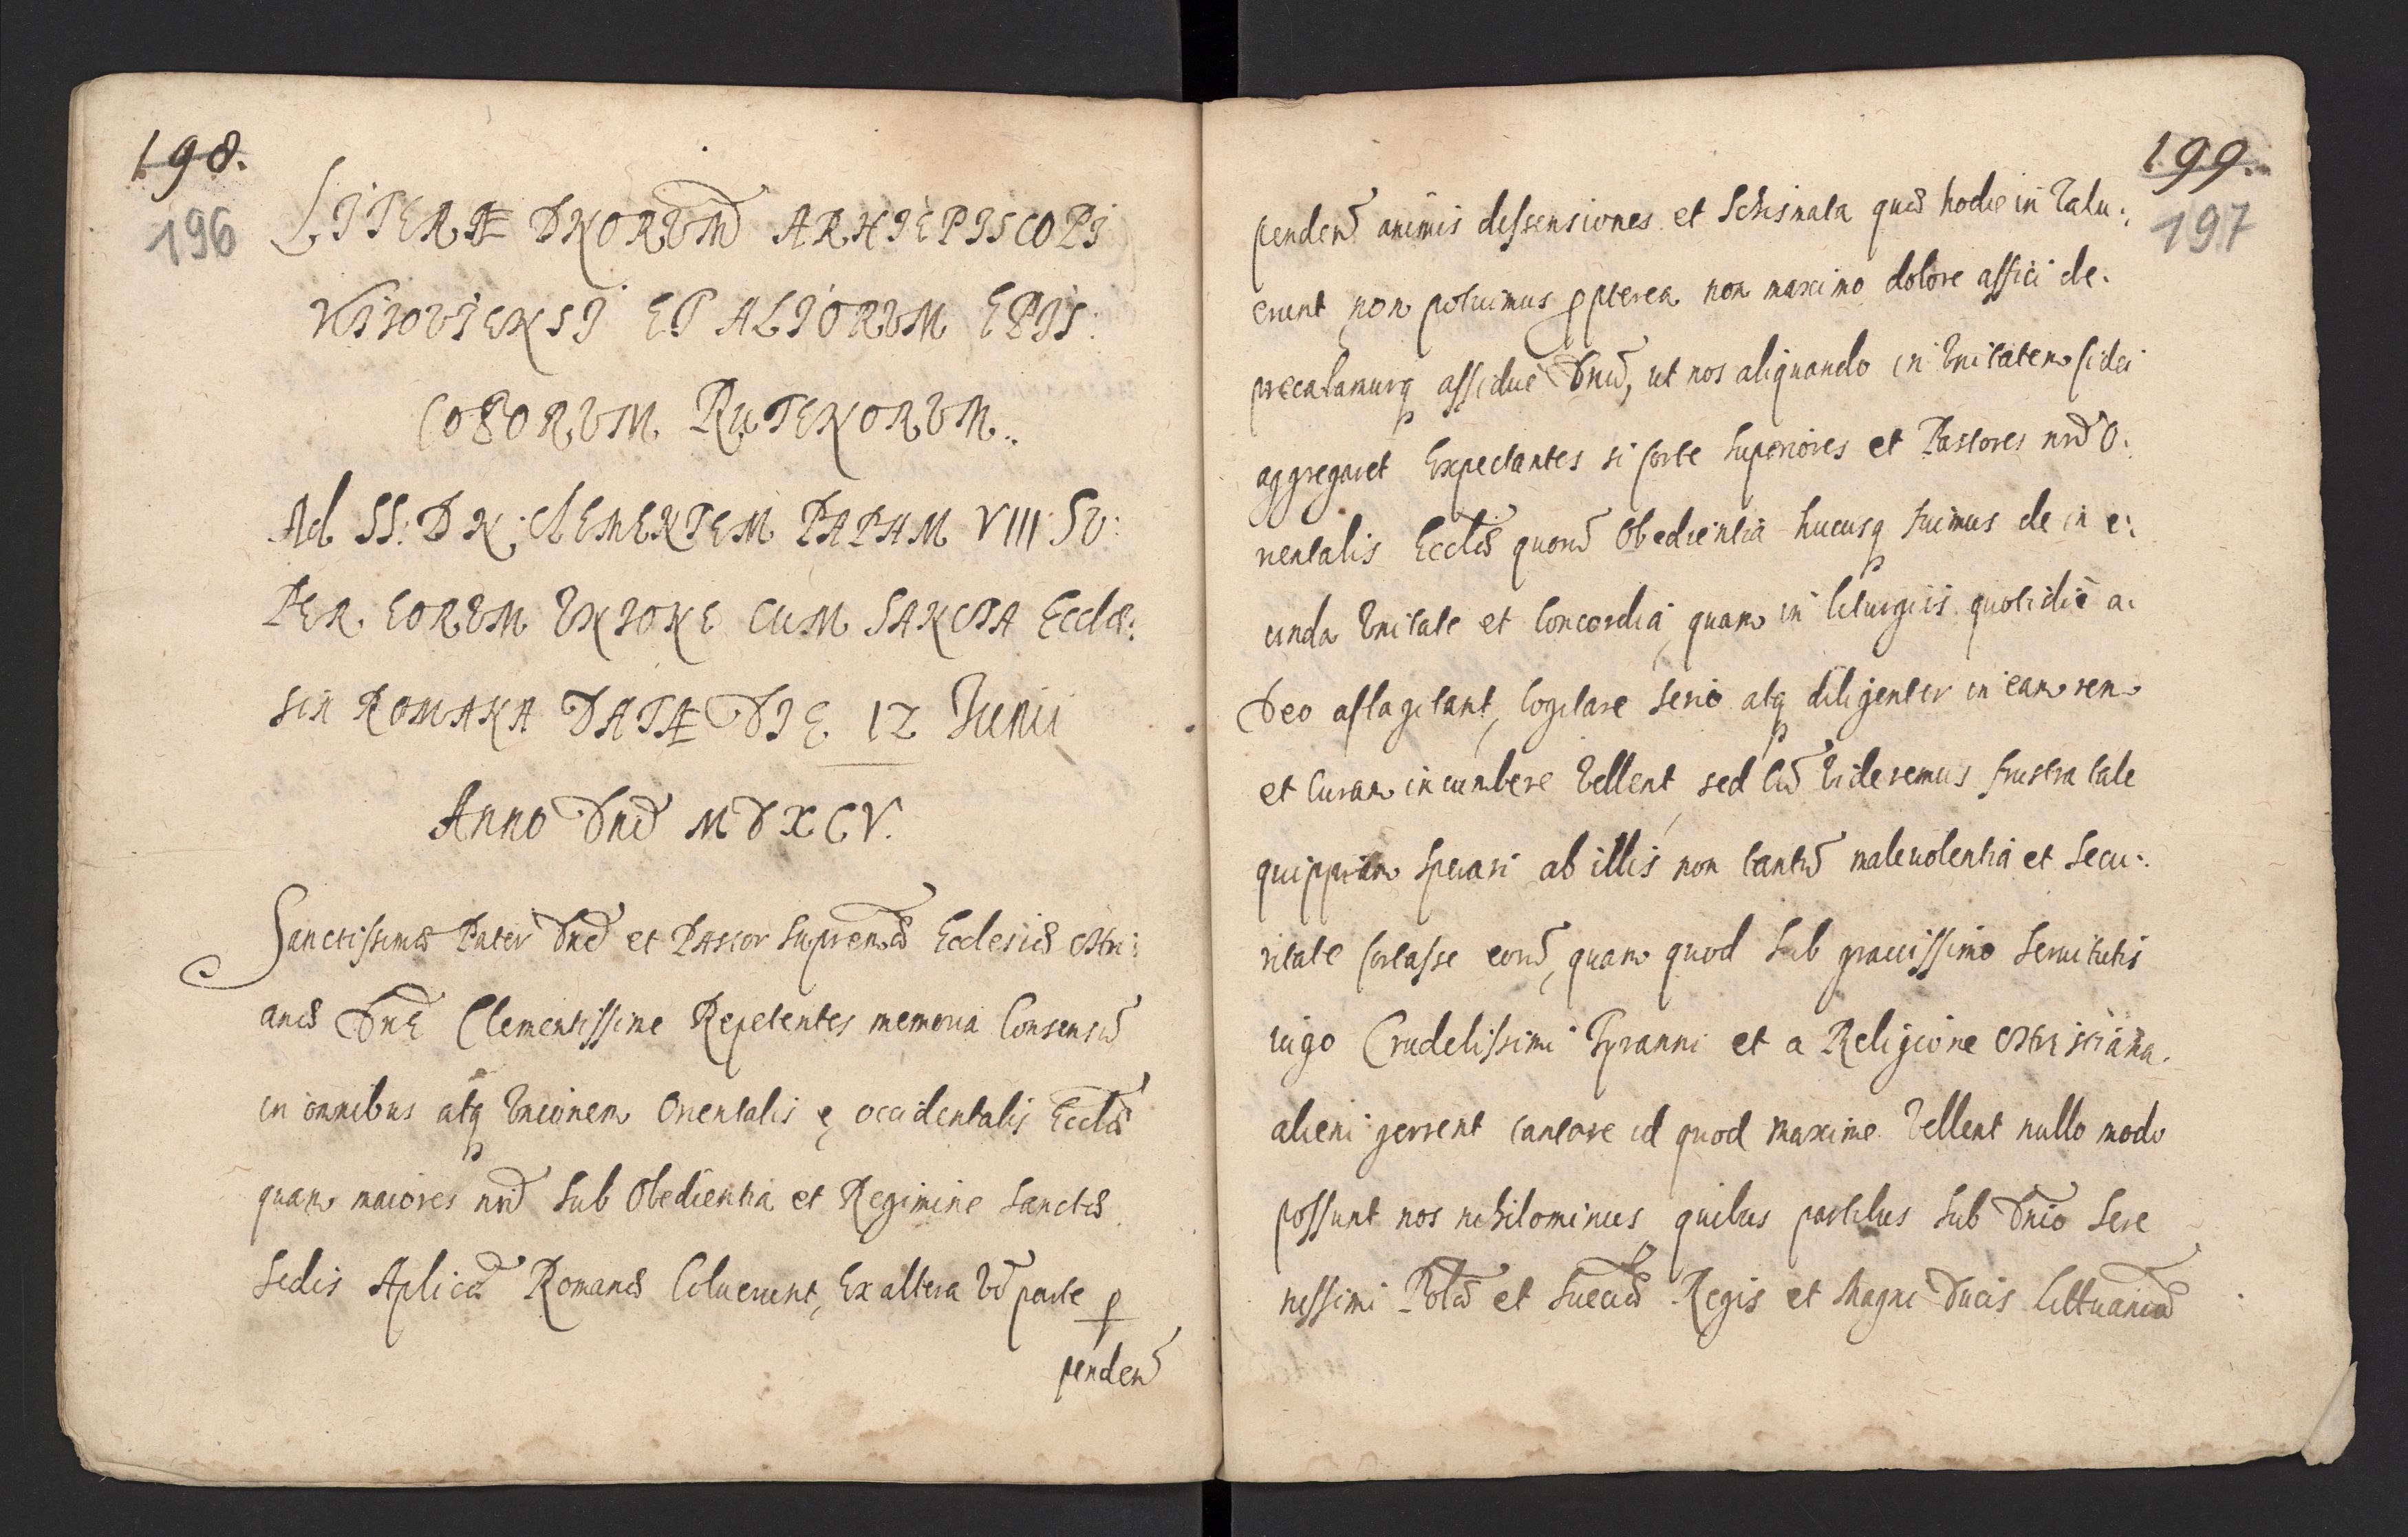 198.
196
LITERÆ DNORUM ARHIEPISCOPI
KIIOVIENSI ET ALIORUM EPIS:
COPORUM RUTENORUM..
Ad SS: DN: CLEMENTEM PAPAM VIII SU:
PER EORUM UNIONE CUM SANCTA Eccle:
SIA ROMANA DATÆ DIE 12 Junii
Anno Dni MDXCV.
Sanctissime Pater Dne et Pastor Supreme Ecclesiæ Chri:
anæ Dne Clementissime Repetentes memoria Consensū
in omnibus atq Unionem Orientalis & occidentalis Eccliæ
quam maiores nri sub Obedientia et Regimine Sanctæ
Sedis Aplicæ Romanæ Coluerunt, Ex altera vō parte p
penden̄
199.
197
penden̄ animis dissensiones et Schismata quæ hodie in valu:
erunt non potuimus ppterea non maximo dolore affici de:
precabamurq assidue Dnū, ut nos aliquando in Unitatem fidei
aggregaret Expectantes si forte Superiores et Pastores nrō O:
rientalis Eccliæ quorū Obedientia hucusq fuimus de in e:
unda Unitate et Concordia, quam in liturgiis quotidiè a:
Deo aflagitant, Cogitare serio atq diligenter in eam rem
et Curam incumbere vellent, sed Cū videremus frustra tale
quippiam sperari ab illis non tantū malevolentia et Secu:
ritate fortasse eorū, quam quod Sub gravissimo Servitutis
iugo Crudelissimi Tyranni et a Religione Christiana.
alieni gerrent tantare id quod Maxime vellent nullo modo
possunt nos nihilominus, quibus partibus Sub Dnio Sere
nissimi Polæ et Sueciæ Regis et Magni Ducis Littuaniæ